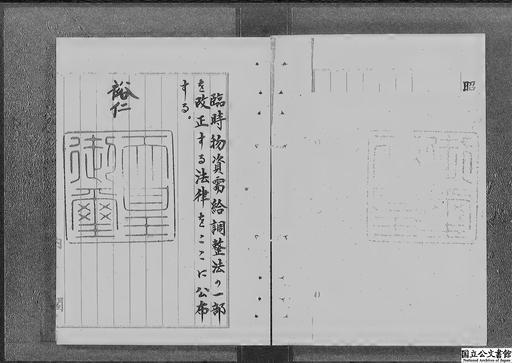 昭
臨時物資需給調整法の一部
を改正する法律をここに公布
する。
裕仁
天皇
御璽
国立公文書館
National Archives of Japan